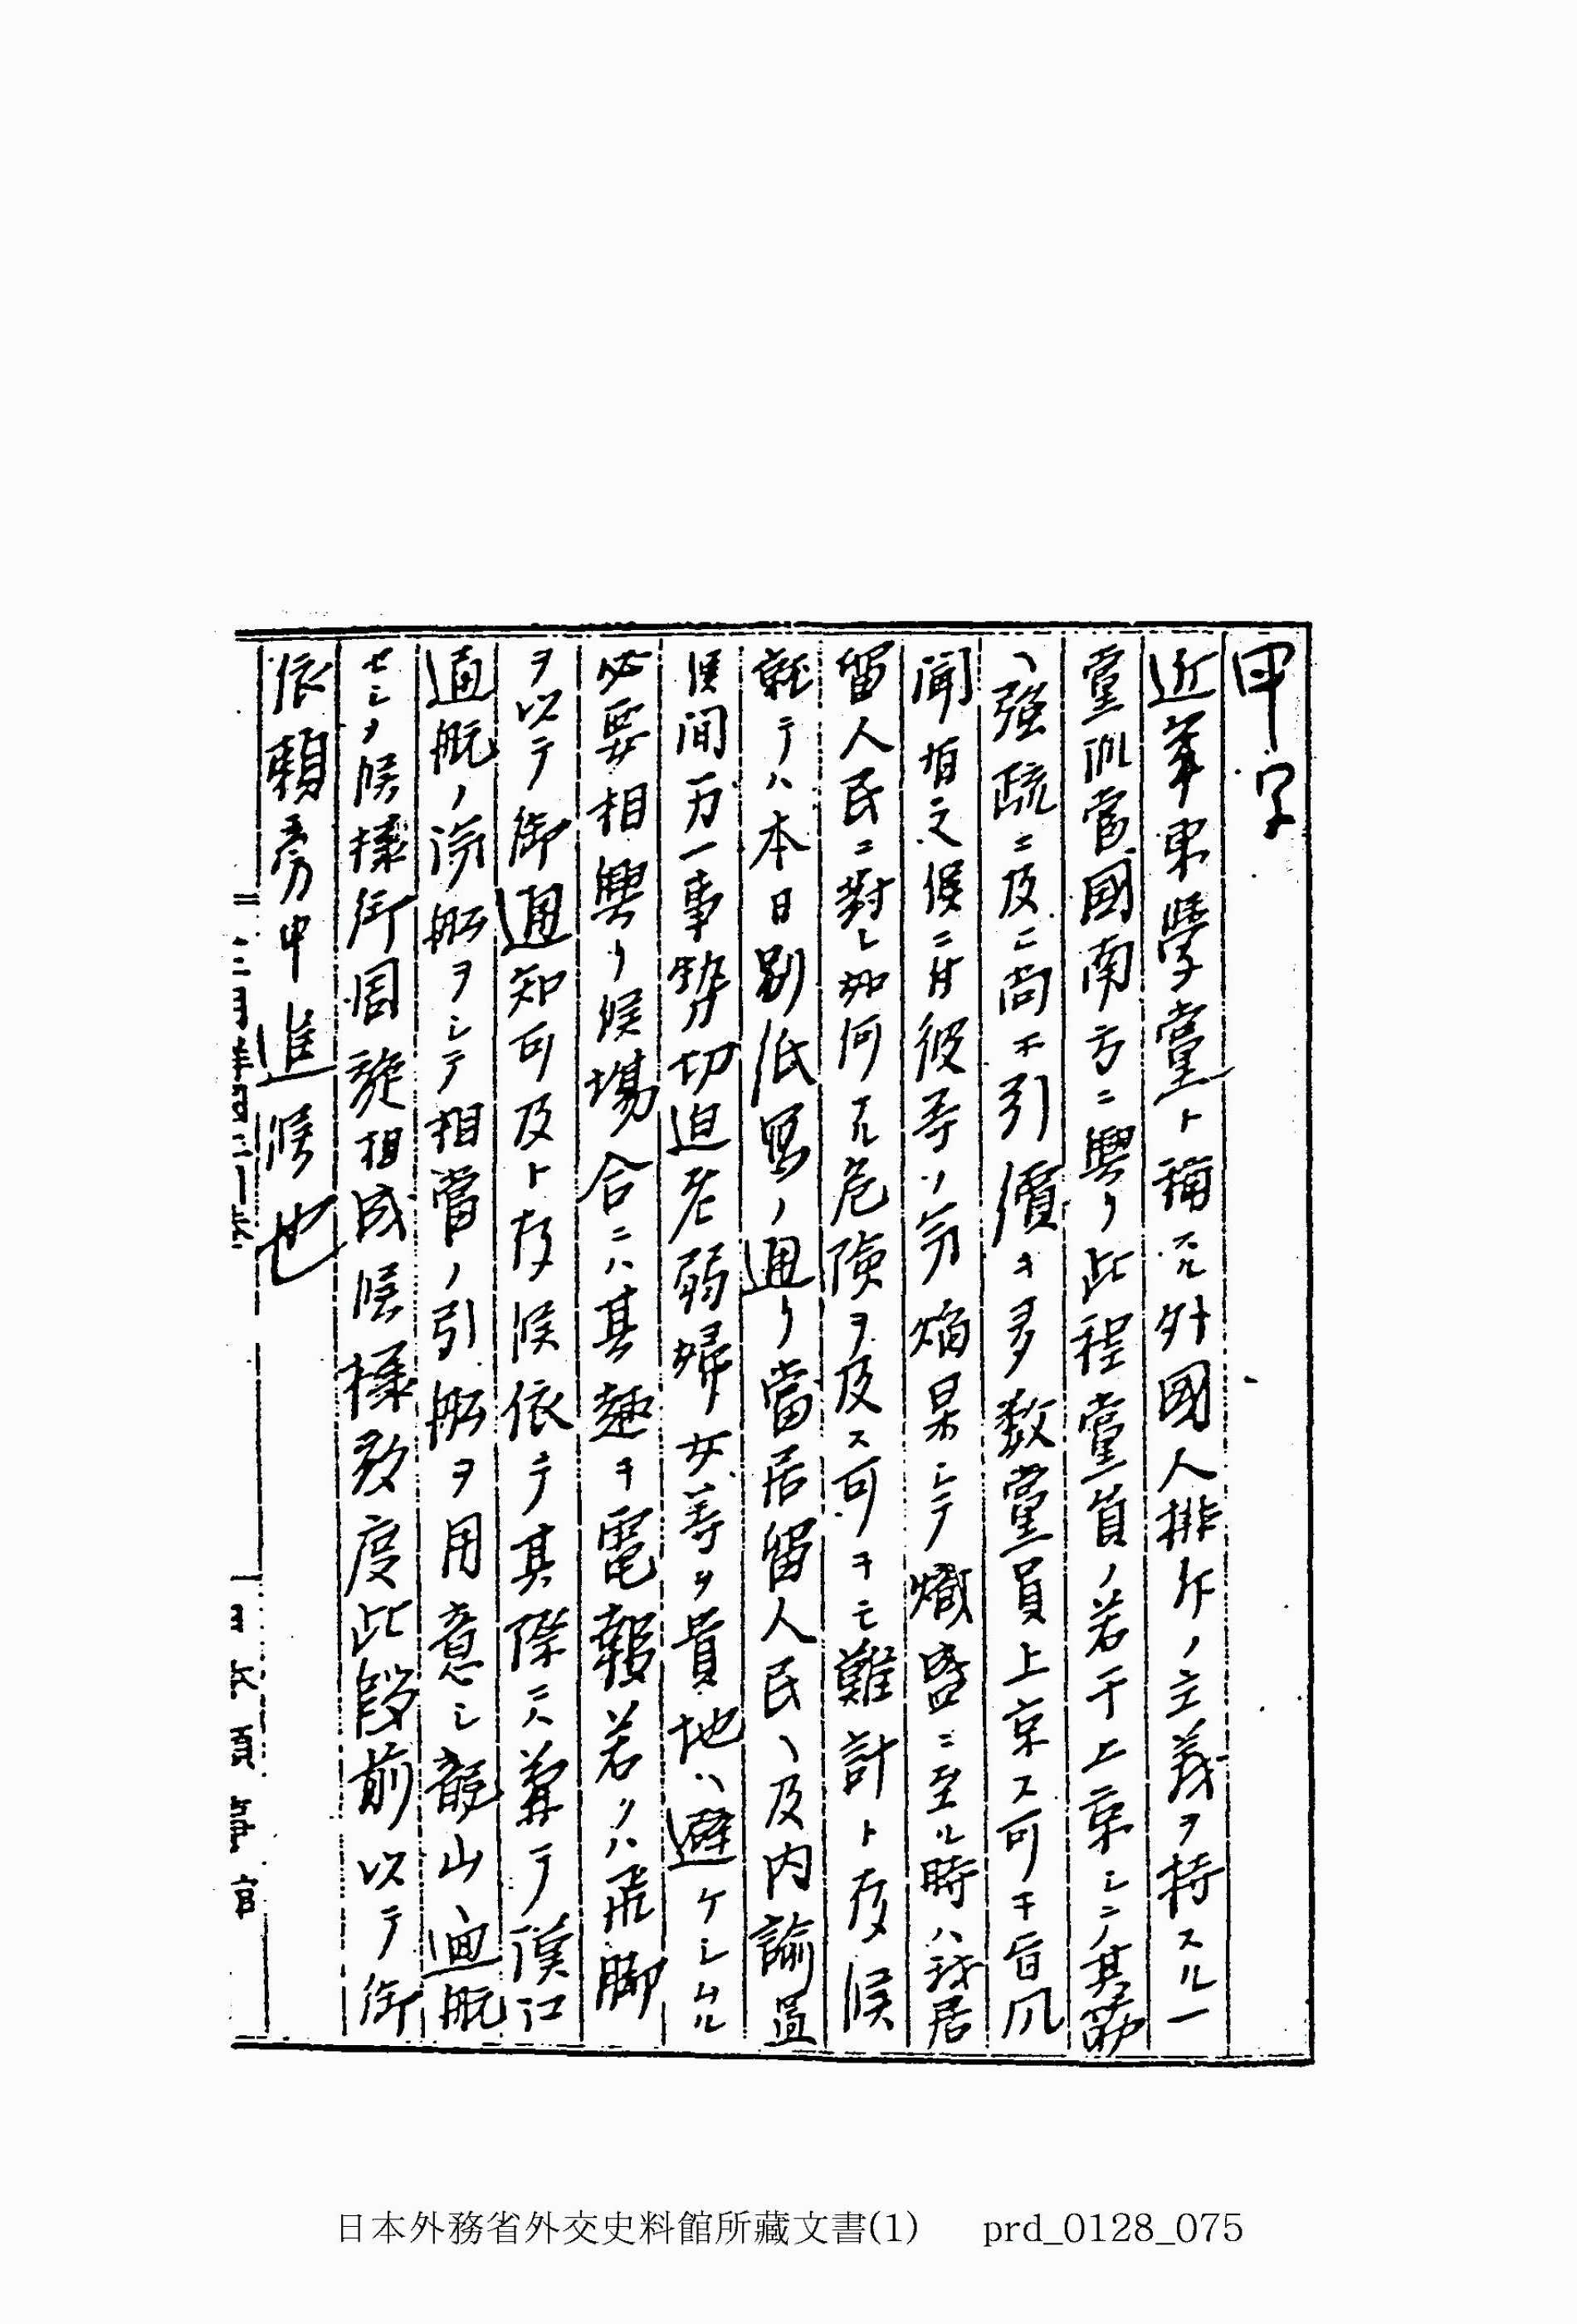 甲字
近年東學黨ト稱スル外國人排斥ノ主義ヲ持スル一
黨派當國南方ニ興リ此程黨員ノ若干上京シテ其筋
ヘ強疏ニ及ヒ尚不引續キ多数黨員上京ス可キ旨風
聞有之候ニ付彼等ノ勢焔果シテ熾盛ニ至ル時ハ我居
留人民ニ對シ如何ナル危險ヲ及ス可キモ難計ト存候
就テハ本日別紙寫ノ通リ當居留人民ヘ及内諭置
候間万一事勢切迫老弱婦女等ヲ貴地ヘ避ケシムル
必要相興リ候場合ニハ其趣キ電報若クハ飛脚
ヲ以テ御通知可及ト存候依テ其際ニハ兼テ漢江
通航ノ滊舩ヲシテ相當ノ引舩ヲ用意シ龍山ヘ廻航
セシヲ候様御周旋相成候様致度此段前以テ御
依賴旁申進候也
二
一日本領事官
日本外務省外交史料館所藏文書(1) prd_0128_075